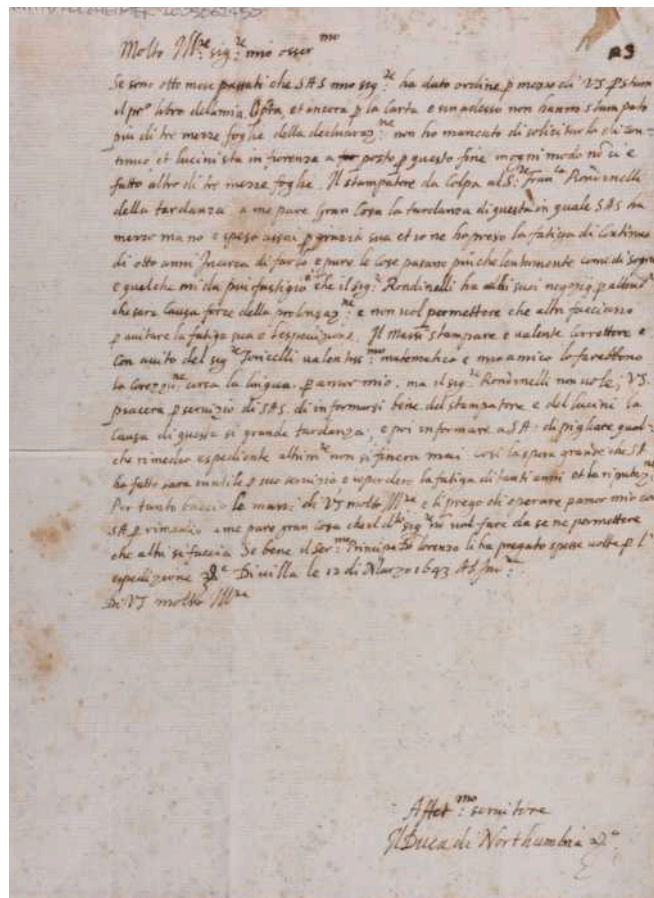 Molto Ill.re sig.re mio osser.mo
23
Se sono otto mese passati che SAS mio sig.re ha dato ordine p mezzo di VS p stam
il pro libro della mia Opra, et ancora p la Carta e sin adesso non hanno stampato
più di tre mezze foglie della declaraz.ne non ho mancato di solicitarlo di con-
tinuo, et lucini sta in firenze a posto p questo fine in ogni modo nō ci è
fatto altro di tre mezze foglie. Il stampatore da Colpa al S.re Fran.co Rondinelli
della tardanza a me pare Gran Cosa la tardanza di questa in quale SAS ha
messo mano e speso assai p grazia sua et io ne ho preso la fatiga di Continuo
di otto anni Incirca di farlo, e pure le Cose passano più che lentamente come di sogno
e qualche mi da più fastigio che il sig.re Rondinelli ha altri suoi negozij p
che sara Causa forze della prolungaz.ne e non vol permettere che altri facciano
p auitare la fatiga sua e l'espedizione. Il Massi stampare e valente Correttore e
Con aiuto del sig.re Toricelli valentiss.mo matematico e mio amico lo farebbono
la Corezzi.ne circa la lingua, p amor mio. ma il sig.re Rondinelli non vole, VS.
piacera p servizio di SAS. di informarsi bene del stampatore e del lucini la
Causa di questa si grande tardanza, e poi informare a SA: di pigliare qual-
che rimedio espediente altrim.te non si finera mai cosi la spesa grande che SA
ha fatto sara inutile p suo servizio e io perdero la fatiga di tanti anni et la riputaz.ne
Per tanto baccio le mani di VS molto Ill.re e li prego di operare p amor mio co
SA p rimedio a me pare gran Cosa che il d.to sig.re nō vol fare da se ne permettere
che altri si faccia se bene il Ser.mo Principe Lorenzo li ha pregato spesse volte p l'
espedizione Di villa le 12 di Marzo 1643
Di VS molto Ill.re
Affet.mo servitore
Il Duca di Northumbria